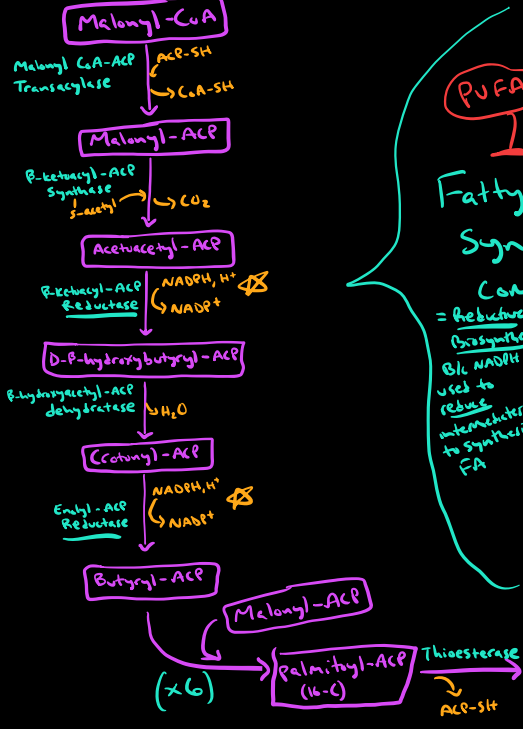 Malonyl-CoA
Malonyl CoA-ACP
Transacylase
ACP-SH
CoA-SH
Malonyl-ACP
β-ketoacyl-ACP
Synthase
S-acetyl
CO₂
Acetoacetyl-ACP
β-ketoacyl-ACP
Reductase
NADPH, H⁺
NADP⁺
D-β-hydroxybutyryl-ACP
β-hydroxyacetyl-ACP
dehydratase
H₂O
Crotonyl-ACP
Enolyl-ACP
Reductase
NADPH, H⁺
NADP⁺
Butyryl-ACP
Malonyl-ACP
(x6)
Palmitoyl-ACP
(16-C)
Thioesterase
ACP-SH
PUFA
Fatty
Syn
Com
= Reductive
Biosynthe
B/c NADPH
used to
reduce
intermediates
to synthesi
FA